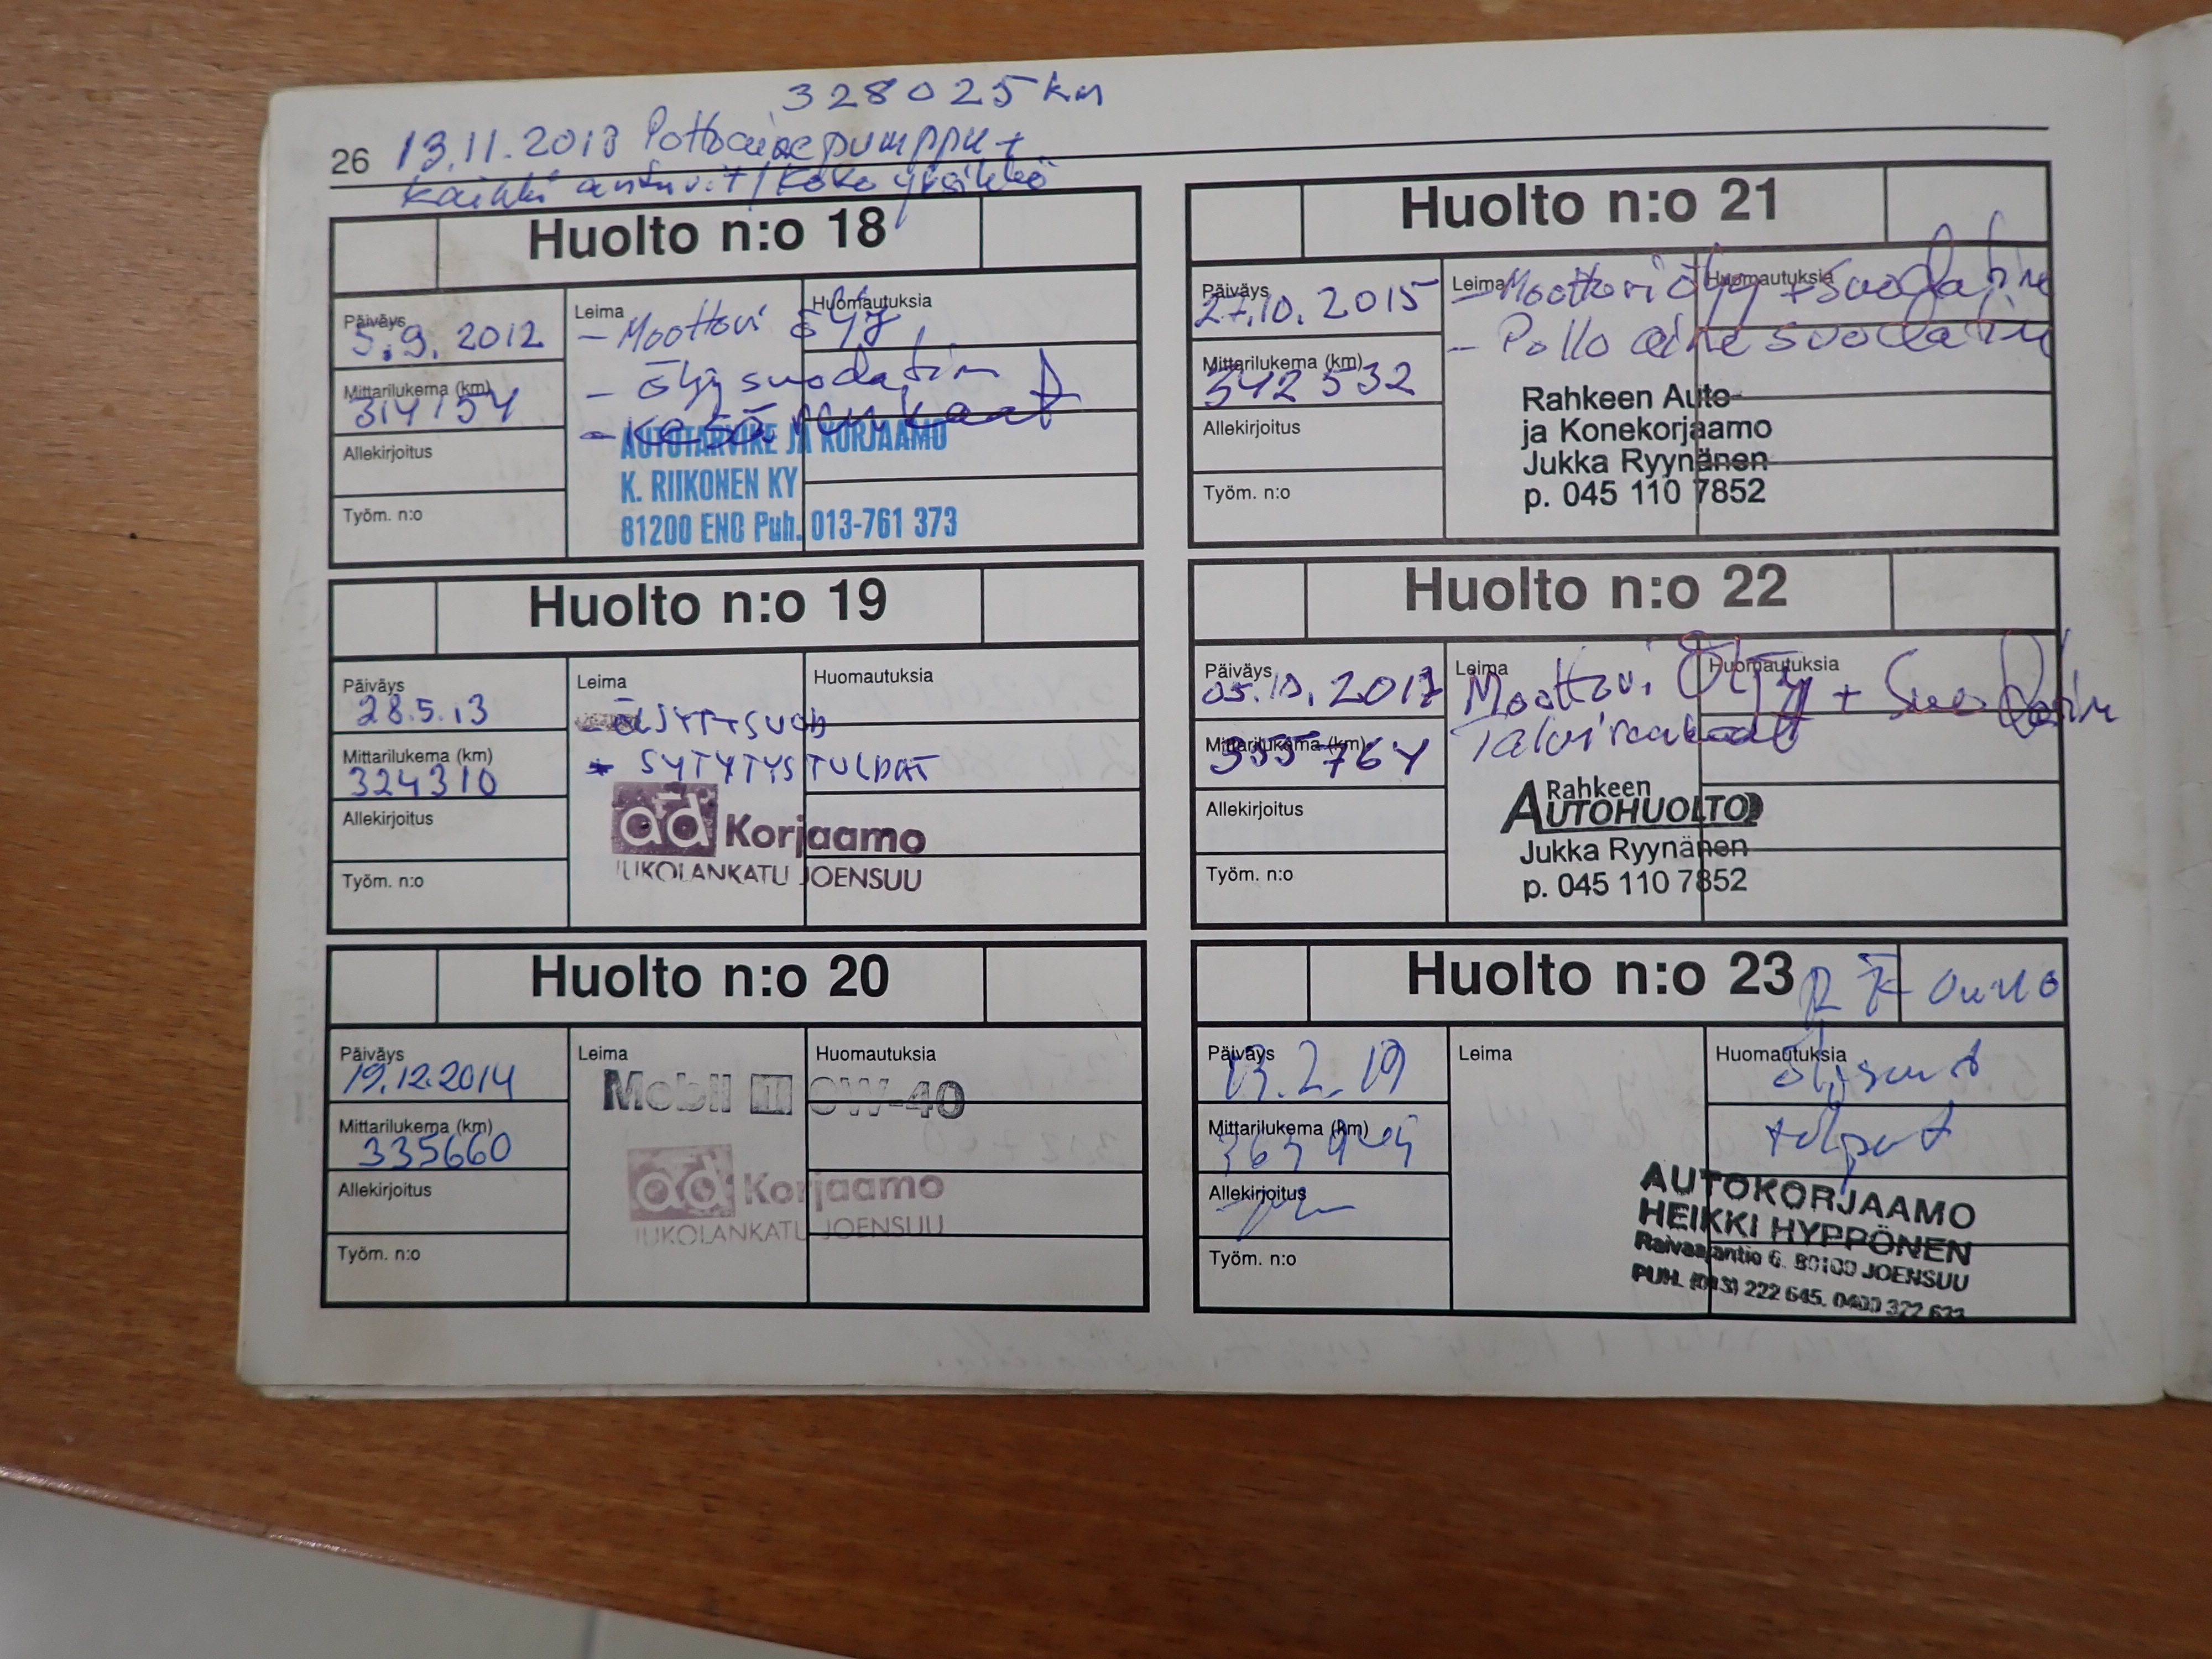 328025 km
26 13.11.2013 Polttoainepumppu +
kaikki anturit / koko yksikkö
Huolto n:o 18
Päiväys
5.9.2012
Mittarilukema (km)
314154
Allekirjoitus
Työm. n:o
Leima
Huomautuksia
- Moottori öljy
- öljysuodatin
- Kesärenkaat
AUTOTARVIKE JA KORJAAMO
K. RIIKONEN KY
81200 ENO Puh. 013-761 373
Huolto n:o 19
Päiväys
28.5.13
Mittarilukema (km)
324310
Allekirjoitus
Työm. n:o
Leima
Huomautuksia
ÖLJYT+SUOD
SYTYTYSTULPAT
ad Korjaamo
JUKOLANKATU JOENSUU
Huolto n:o 20
Päiväys
19.12.2014
Mittarilukema (km)
335660
Allekirjoitus
Työm. n:o
Leima
Huomautuksia
Mobil 1 0W-40
ad Korjaamo
JUKOLANKATU JOENSUU
Huolto n:o 21
Päiväys
27.10.2015
Mittarilukema (km)
342532
Allekirjoitus
Työm. n:o
Leima
Huomautuksia
- Moottoriöljy + suodatin
- Polloainesuodatin
Rahkeen Auto-
ja Konekorjaamo
Jukka Ryynänen
p. 045 110 7852
Huolto n:o 22
Päiväys
05.10.2017
Mittarilukema (km)
355764
Allekirjoitus
Työm. n:o
Leima
Huomautuksia
Moottori Öljy + Suodatin
Talvirenkaat
Rahkeen
AUTOHUOLTO
Jukka Ryynänen
p. 045 110 7852
Huolto n:o 23
Päiväys
13.2.19
Mittarilukema (km)
Allekirjoitus
Työm. n:o
Leima
Huomautuksia
tulpat
AUTOKORJAAMO
HEIKKI HYPPÖNEN
Raivaajantie 6. 80100 JOENSUU
PUH. (013) 222 645. 0400 322 633